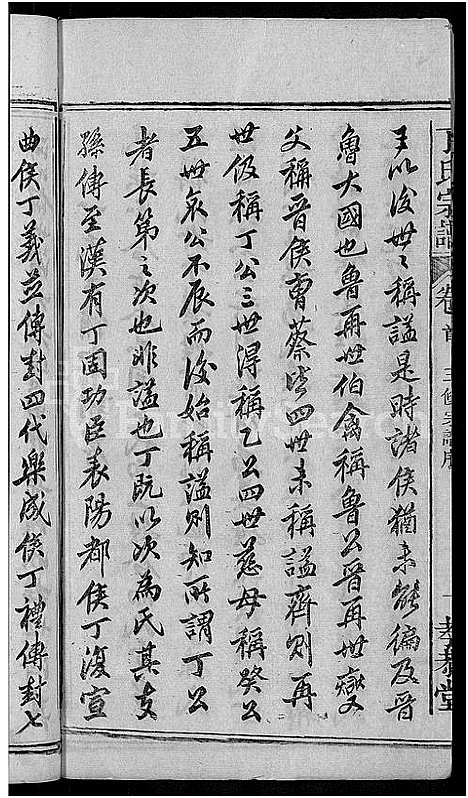 丁氏宗譜 卷首 三修宗譜序 一 孝恭堂
王以後世〻稱謚是時諸侯猶未能徧及晉
魯大國也魯再世伯禽稱魯公晉再世燮
父稱晉侯曹蔡皆四世未稱謚齊則再
世伋稱丁公三世得稱乙公四世慈母稱癸公
五世哀公不辰而後始稱謚則知所謂丁公
者長第之次也非謚也丁既以次為氏其支
孫傳至漢有丁固功臣表陽都侯丁復宣
曲侯丁義並傳封四代樂成侯丁禮傳封七